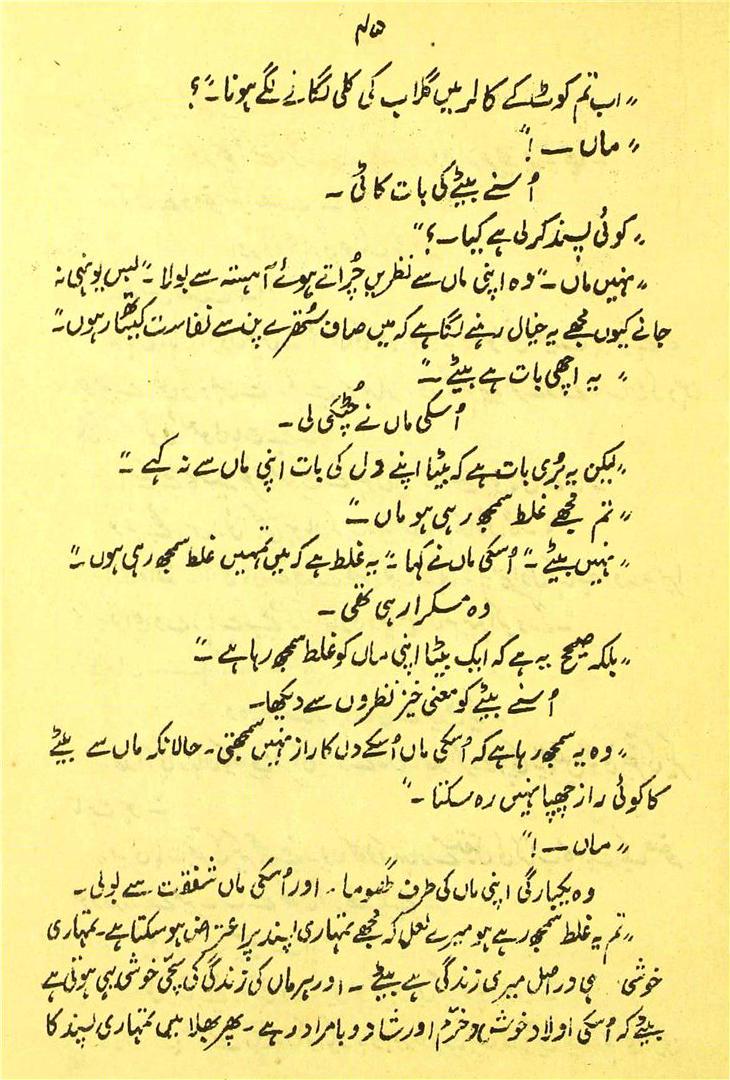 ۴۵
”اب تم کوٹ کے کالر میں گلاب کی کلی لگانے لگے ہونا۔“؟
”ماں — !“
اُسنے بیٹے کی بات کاٹی۔
”کوئی پسند کر لی ہے کیا۔؟“
”نہیں ماں۔“ وہ اپنی ماں سے نظریں چُراتے ہوئے آہستہ سے بولا۔ ”بس یونہی نہ
جانے کیوں مجھے یہ خیال رہنے لگا ہے کہ میں صاف ستھرے پن سے نفاست کیساتھ رہوں۔“
”یہ اچھی بات ہے بیٹے۔“
اُسکی ماں نے چٹکی لی۔
”لیکن یہ بُری بات ہے کہ بیٹا اپنے دل کی بات اپنی ماں سے نہ کہے۔“
”تم مجھے غلط سمجھ رہی ہو ماں —“
”نہیں بیٹے۔“ اُسکی ماں نے کہا۔ ”یہ غلط ہے کہ میں تمہیں غلط سمجھ رہی ہوں۔“
وہ مسکرا رہی تھی۔
”بلکہ صحیح یہ ہے کہ ایک بیٹا اپنی ماں کو غلط سمجھ رہا ہے۔“
اُسنے بیٹے کو معنی خیز نظروں سے دیکھا۔
”وہ یہ سمجھ رہا ہے کہ اُسکی ماں اُسکے دل کا راز نہیں سمجھتی۔ حالانکہ ماں سے بیٹے
کا کوئی راز چھپا نہیں رہ سکتا۔“
”ماں — !“
وہ یکبارگی اپنی ماں کی طرف گھوما۔ اور اُسکی ماں شفقت سے بولی۔
”تم یہ غلط سمجھ رہے ہو میرے لعل کہ مجھے تمہاری پسند پر اعتراض ہو سکتا ہے۔ تمہاری
خوشی ہی دراصل میری زندگی ہے بیٹے۔ اور ہر ماں کی زندگی کی سچّی خوشی یہی ہوتی ہے
بیٹے کہ اُسکی اولاد خوش و خرّم اور شاد و بامراد رہے۔ پھر بھلا میں تمہاری پسند کا